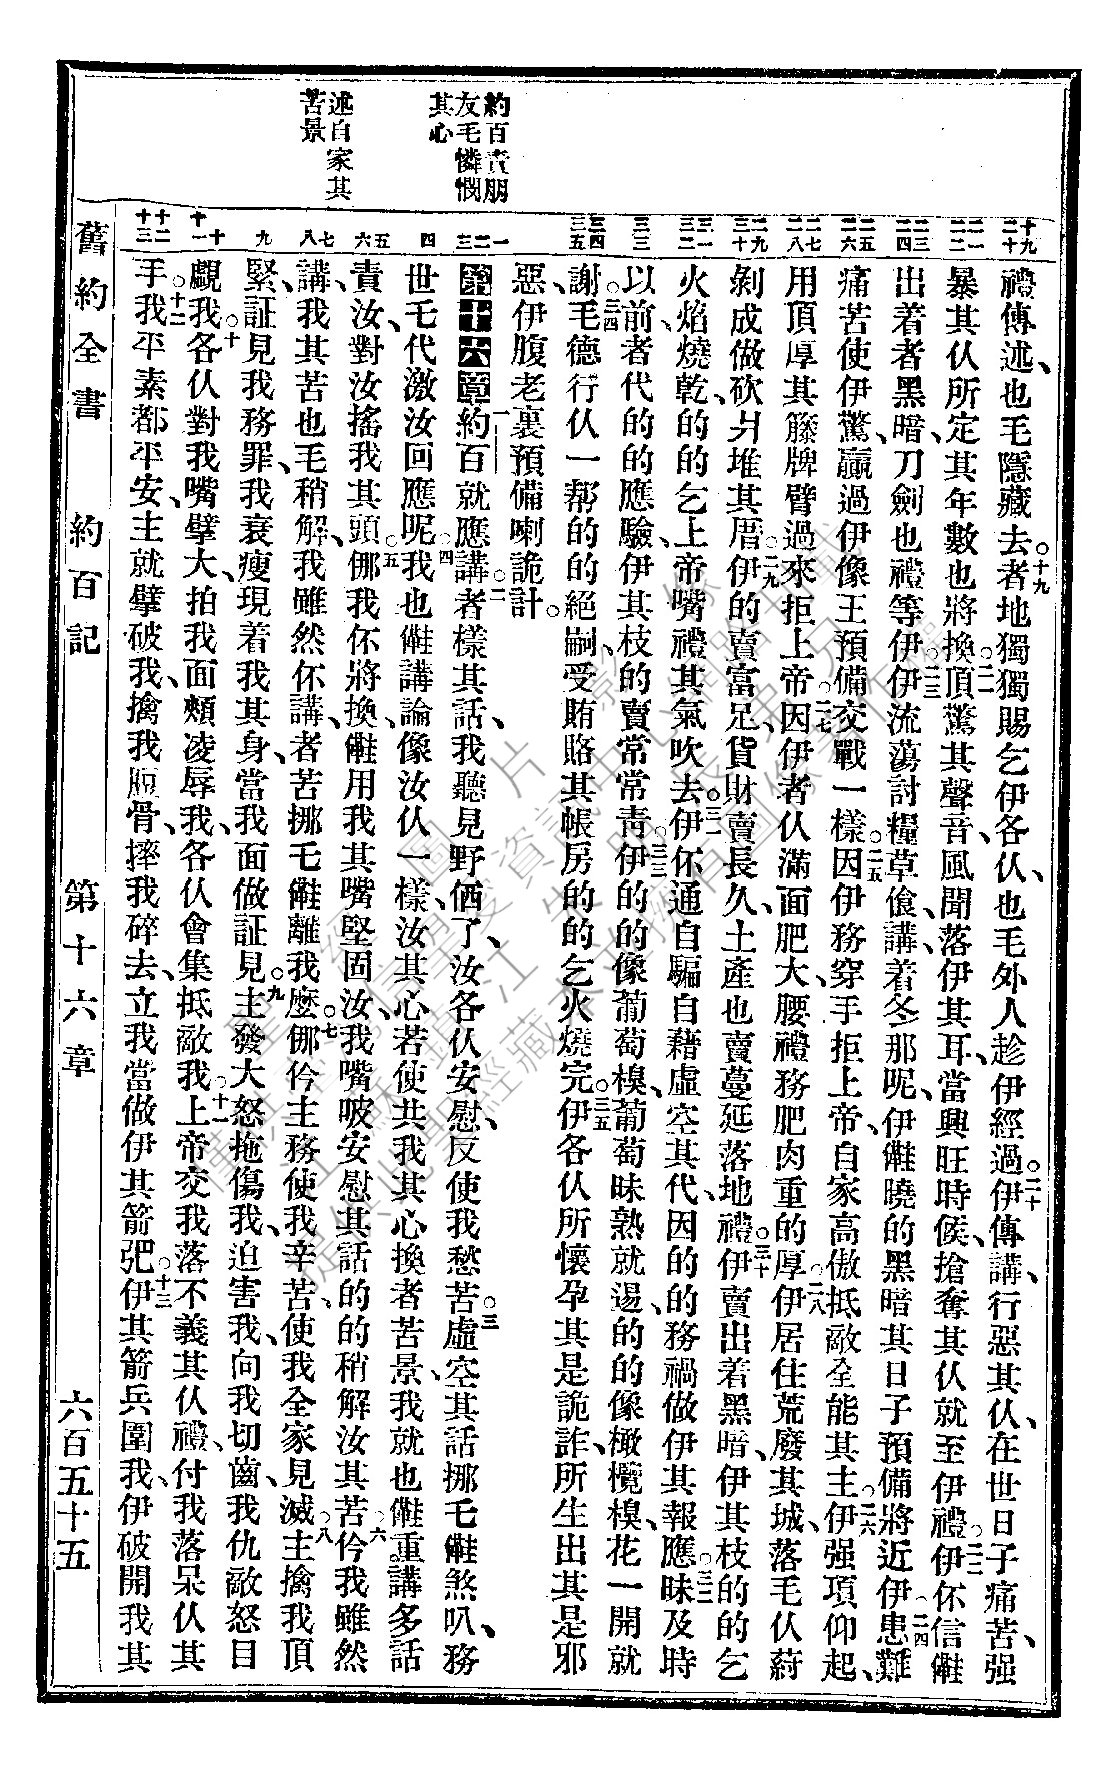 約百責朋
友毛憐憫
其心
述自家其
苦景
禮傳述、也毛隱藏去。十九者地獨獨賜乞伊各仈、也毛外人趁伊經過。二十伊傳講、行惡其仈、在世日子痛苦、强
暴其仈所定其年數也將換。二一頂驚其聲音、風聞落伊其耳、當興旺時候、搶奪其仈就至伊禮。二二伊伓信
出着者黑暗、刀劍也禮等伊。二三伊流蕩討糧草飡、講着冬那呢、伊曉的黑暗其日子預備將近伊。二四患難
痛苦使伊驚、贏過伊像王預備交戰一樣。二五因伊務穿手拒上帝、自家高傲抵敵全能其主。二六伊强項仰起、
用頂厚其籐牌臂過來拒上帝。二七因伊者仈滿面肥大、腰禮務肥肉重的厚。二八伊居住荒廢其城、落毛仈
剝成做砍爿堆其厝。二九伊的賣富足、貨財賣長久、土產也賣蔓延落地禮。三十伊賣出着黑暗、伊其枝的的乞
火焰燒乾、的的乞上帝嘴禮其氣吹去。三一伊伓通自騙自藉虛空其代、因的的務禍做伊其報應。三二昧及時
以前、者代的的應驗、伊其枝的賣常常靑。三三伊的的像葡萄模、葡萄昧熟就逿、的的像橄欖模、花一開就
謝。三四毛德行仈一帮的的絕嗣、受賄賂其帳房的的乞火燒完。三五伊各仈所懷孕其是詭詐、所生出其是邪
惡、伊腹老裏預備喇詭計。
第十六章約百就應講。二者樣其話、我聽見野俼了、汝各仈安慰、反使我愁苦。三虛空其話挪乇煞叭、務
世乇代激汝回應呢。四我也講論像汝仈一樣、汝其心若使共我其心換者苦景、我就也重講多話
責汝、對汝搖我其頭。五㑚我伓將換、用我其嘴堅固汝、我嘴㕹安慰其話的的稍解汝其苦。六伶我雖然
講、我其苦也毛稍解、我雖然伓講、者苦挪乇離我麼。七㑚伶主務使我辛苦、使我全家見滅。八主擒我頂
緊、証見我務罪、我衰瘦現着我其身、當我面做証見。九主發大怒拖傷我、迫害我、向我切齒、我仇敵怒目
覷我。十各仈對我嘴擘大、拍我面頰凌辱我、各仈會集抵敵我。十一上帝交我落不義其仈禮、付我落呆仈其
手。十二我平素都平安、主就擘破我、擒我脰骨、摔我碎去、立我當做伊其箭弝。十三伊其箭兵圍我、伊破開我其
舊約全書　約百記　第十六章　六百五十五